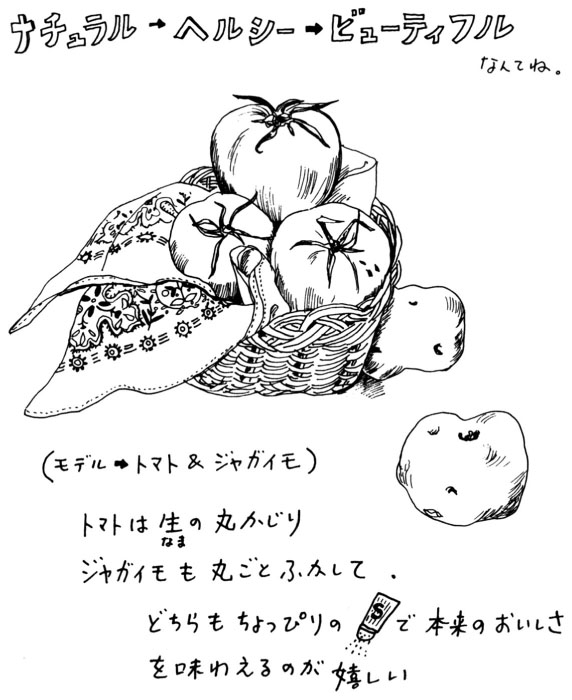 ナチュラル➡ヘルシー➡ビューティフル
なんてね。
(モデル➡トマト&ジャガイモ)
トマトは生の丸かじり
なま
ジャガイモも丸ごとふかして.
どちらもちょっぴりの S で本来のおいしさ
を味わえるのが嬉しい